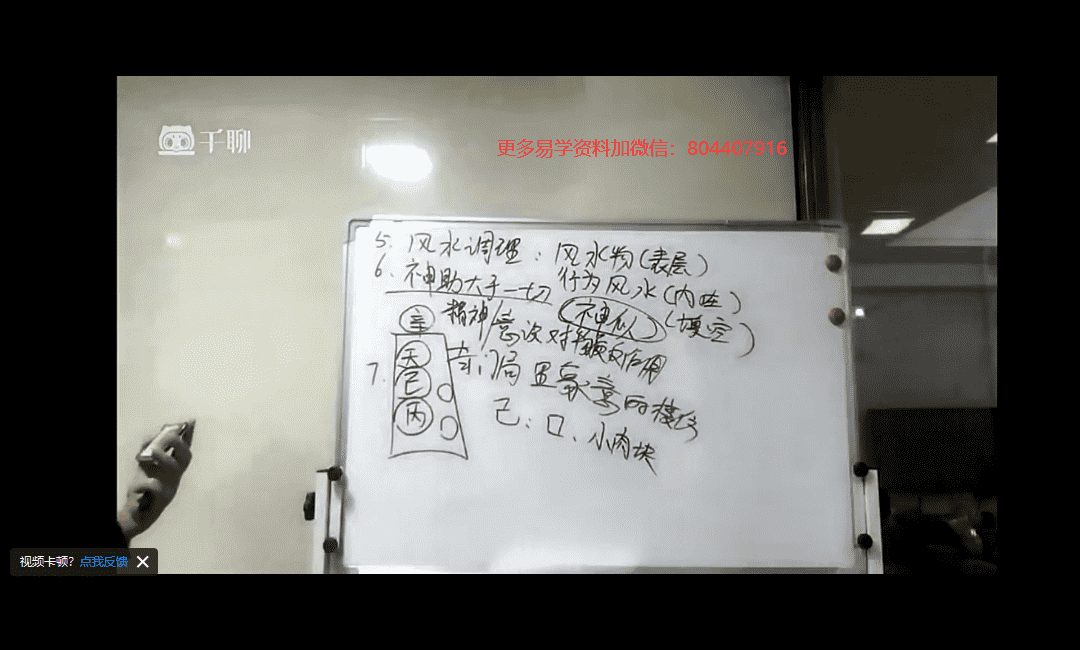 千聊
更多易学资料加微信：804407916
5. 风水调理：风水物(表层)
6. 神助大于一切 行为风水(内在)
精神/意识对 神似(填空)
7. 奇门局 置象意的模仿
天
己
丙
己：口、小肉块
视频卡顿？点我反馈